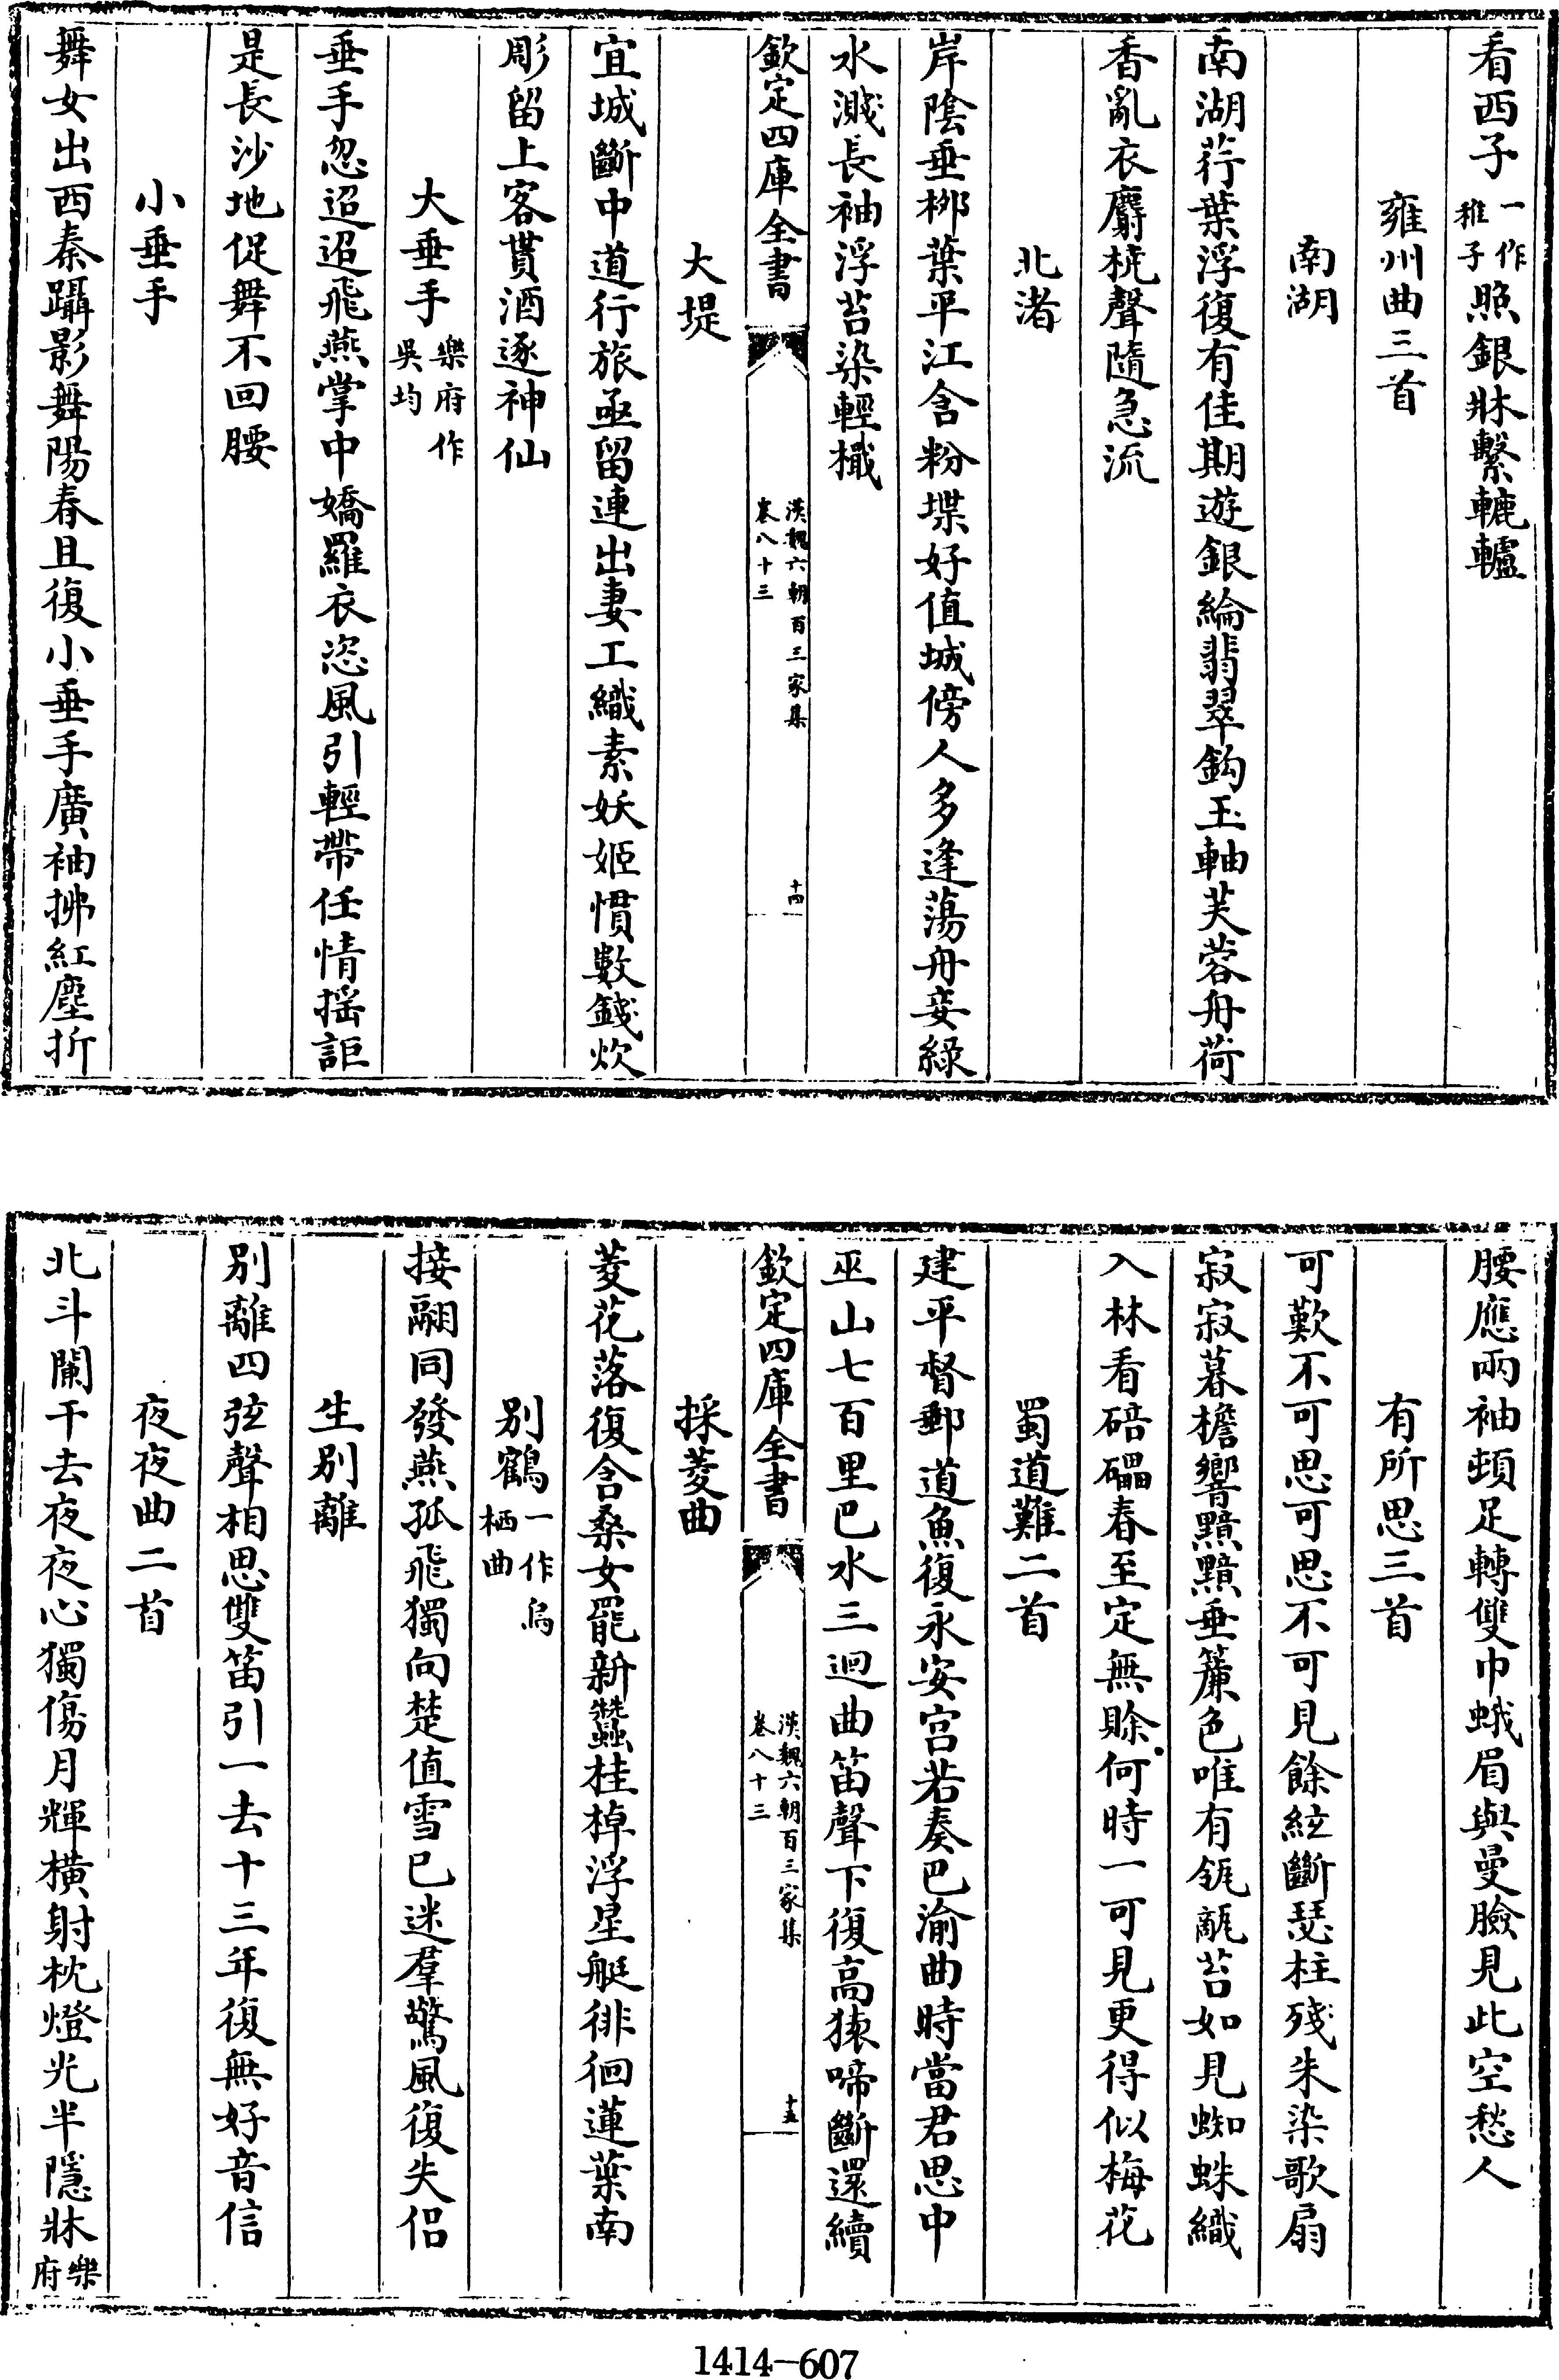 看西子一作稚子照銀牀繫轆轤
雍州曲三首
南湖
南湖荇葉浮復有佳期遊銀綸翡翠鈎玉軸芙蓉舟荷
香亂衣麝桡聲隨急流
北渚
岸陰垂栁葉平江含粉堞好值城傍人多逢蕩舟妾緑
水濺長袖浮苔染輕檝
欽定四庫全書
漢魏六朝百三家集
卷八十三
十四
大堤
宜城斷中道行旅亟留連出妻工織素妖姬慣數錢炊
彫留上客貰酒逐神仙
大垂手樂府作吳均
垂手忽迢迢飛燕掌中嬌羅衣恣風引輕帶任情揺詎
是長沙地促舞不回腰
小垂手
舞女出西秦躡影舞陽春且復小垂手廣袖拂紅塵折
腰應兩袖頓足轉雙巾蛾眉與曼臉見此空愁人
有所思三首
可歎不可思可思不可見餘絃斷瑟柱殘朱染歌扇
寂寂暮檐響黯黯垂簾色唯有瓴甋苔如見蜘蛛織
入林看碚礧春至定無賒何時一可見更得似梅花
蜀道難二首
建平督郵道魚復永安宫若奏巴渝曲時當君思中
巫山七百里巴水三迴曲笛聲下復高猿啼斷還續
欽定四庫全書
漢魏六朝百三家集
卷八十三
十五
採菱曲
菱花落復含桑女罷新蠶桂棹浮星艇徘徊蓮葉南
别鶴一作烏栖曲
接翮同發燕孤飛獨向楚值雪已迷羣驚風復失侶
生别離
别離四弦聲相思雙笛引一去十三年復無好音信
夜夜曲二首
北斗闌干去夜夜心獨傷月輝橫射枕燈光半隱牀樂府
1414-607